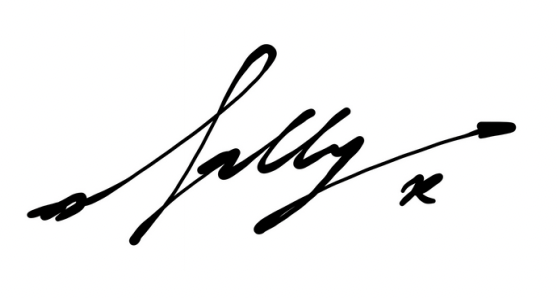 Sally x